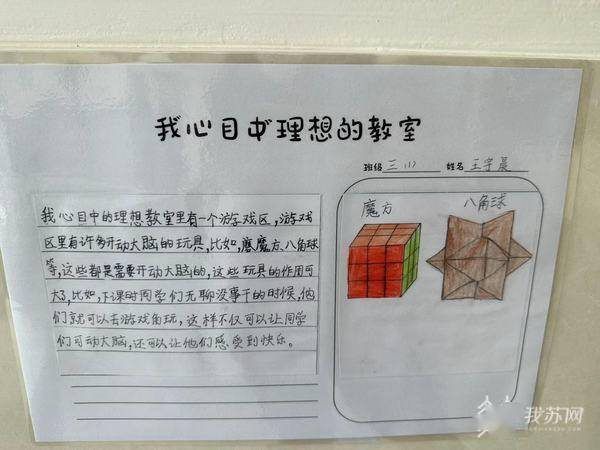 我心目中理想的教室
班级 三(1) 姓名 王宇晨
我心目中的理想教室里有一个游戏区，游戏
区里有许多开动大脑的玩具，比如，魔方、八角球
等，这些都是需要开动大脑的，这些玩具的作用可
大了，比如，下课时同学们无聊没事干的时候，他
们就可以去游戏角玩，这样不仅可以让同学
们可动大脑，还可以让他们感受到快乐。
魔方
八角球
我苏网